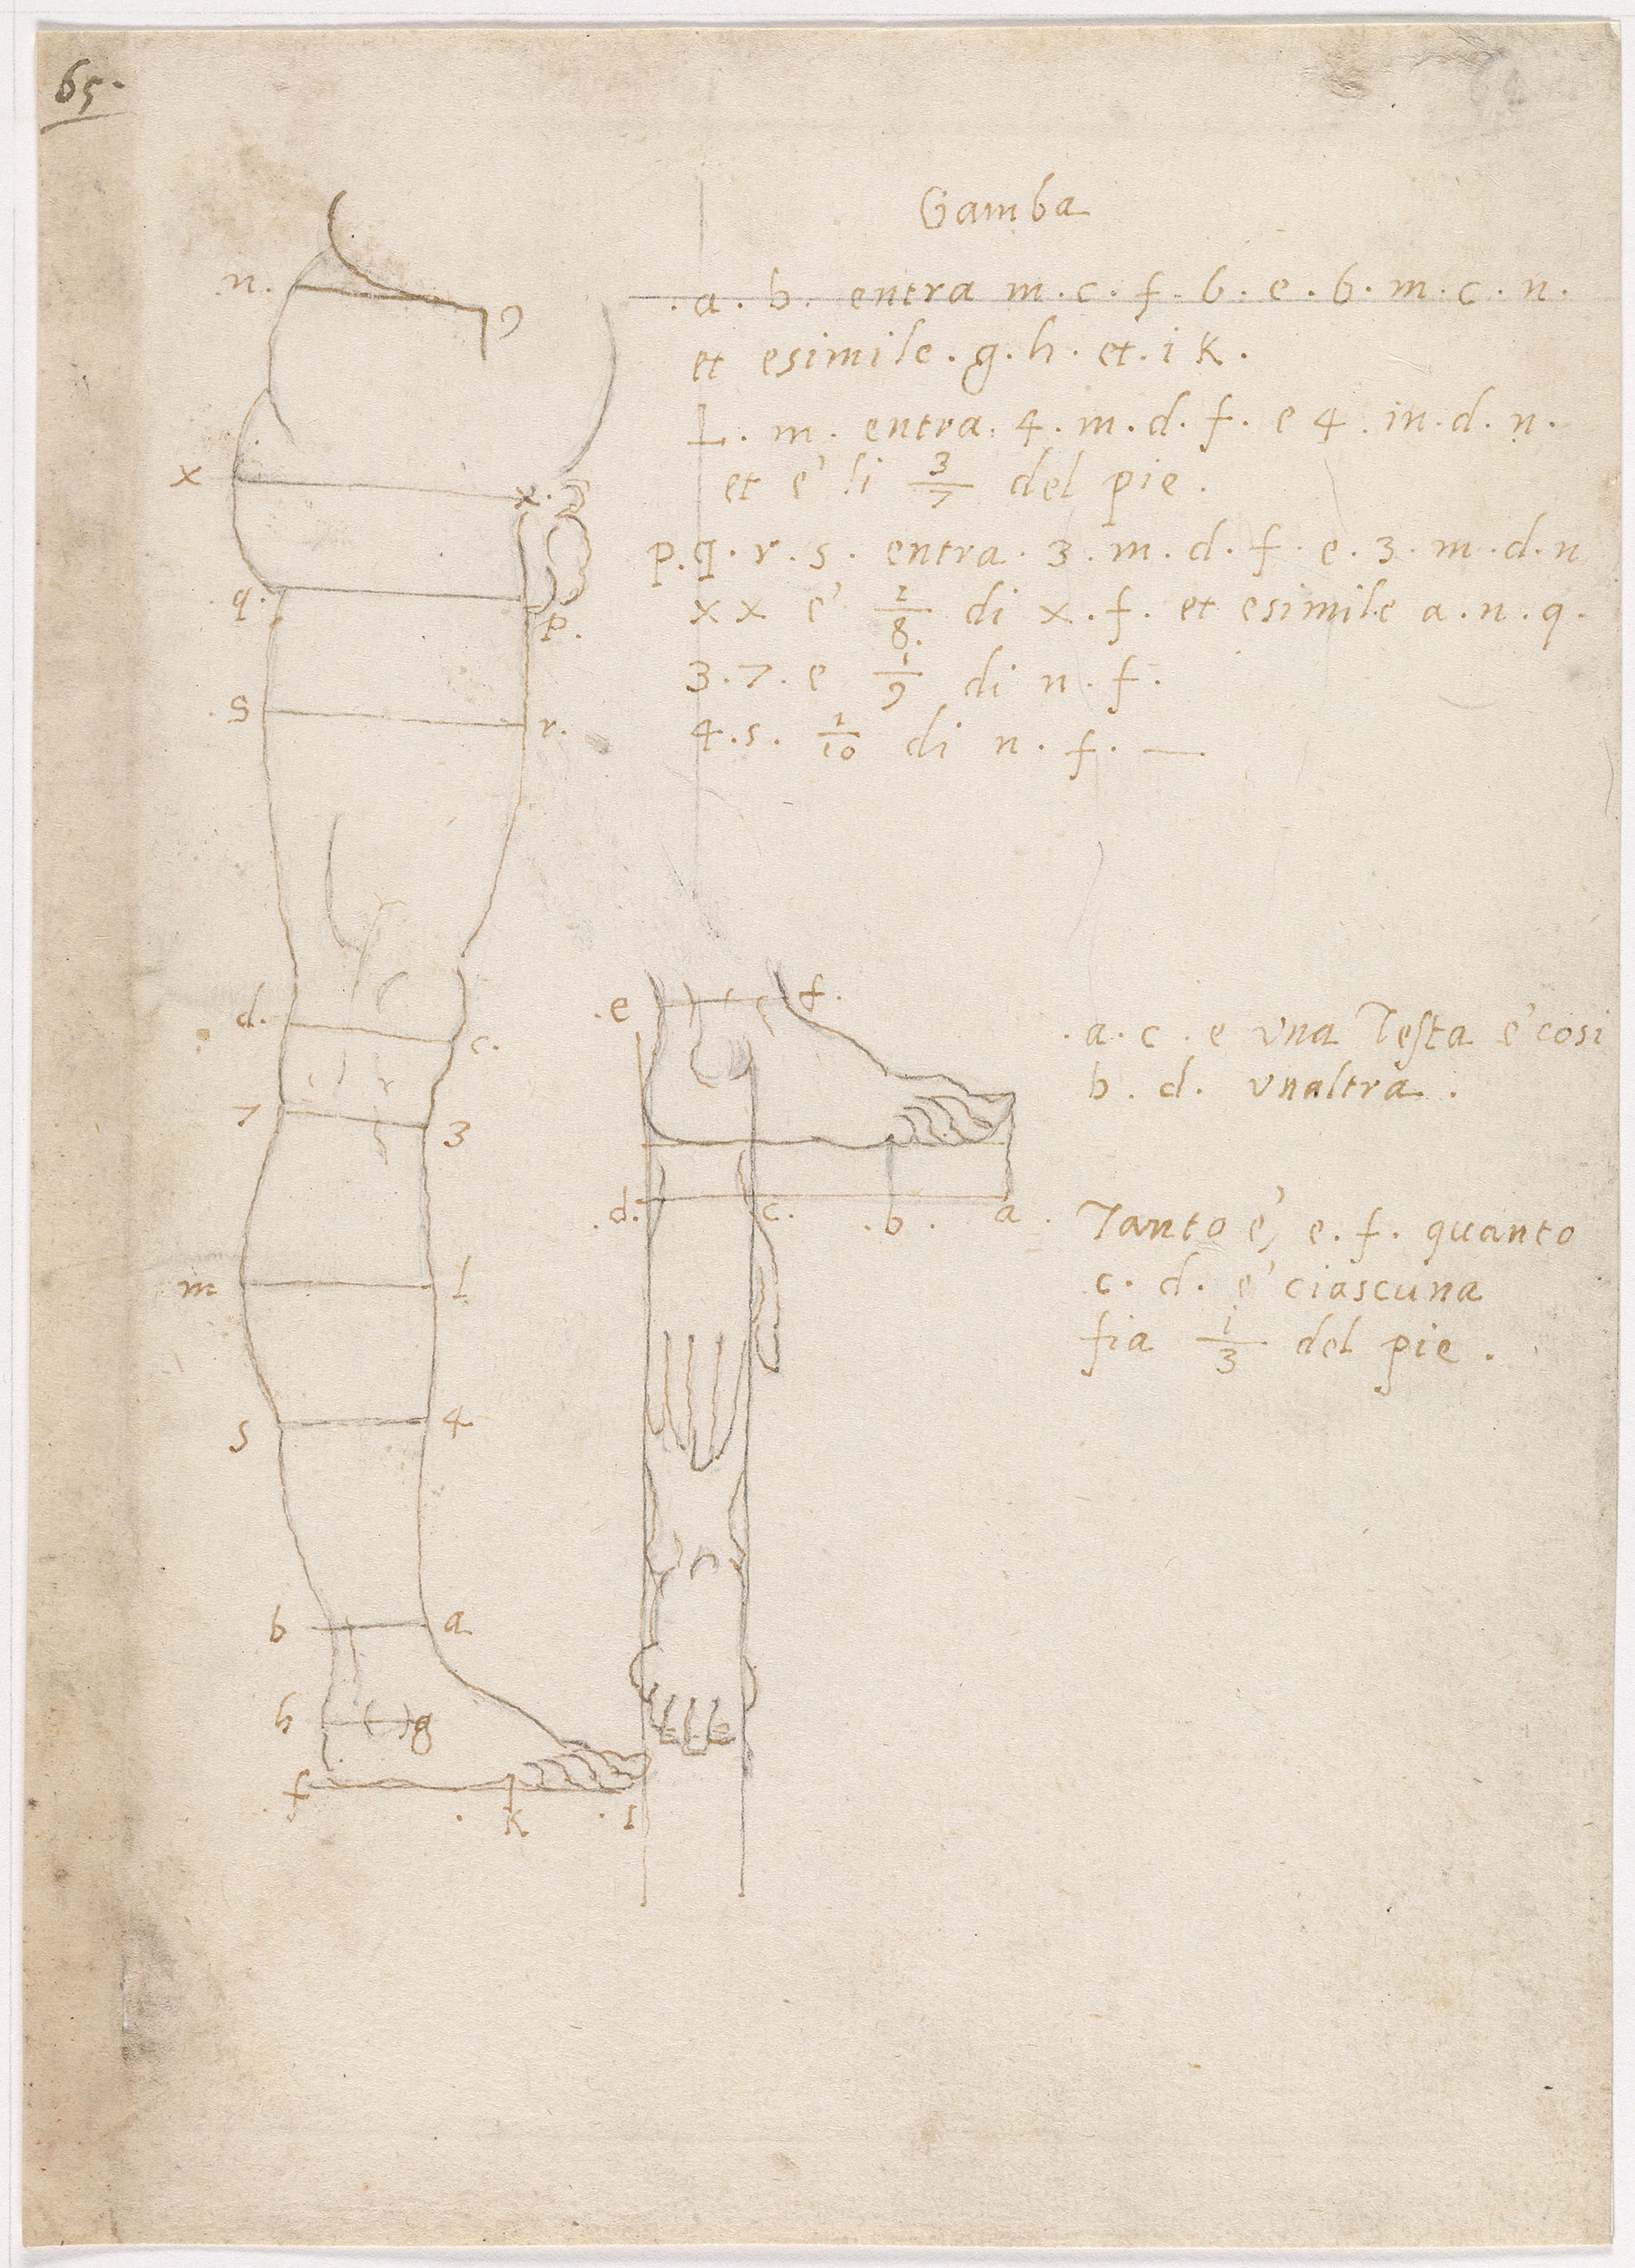 65.
Gamba
.a. b. entra m. c. f. 6. e. 6. m. c. n.
et esimile. g. h. et. i K.
L. m. entra. 4. m. d. f. e 4. in. d. n.
et e' li 3/7 del pie.
p. q. r. s. entra. 3. m. d. f. e. 3. m. d. n
x x e' 1/8. di x. f. et esimile a. n. q.
3. 7. e 1/9 di n. f.
4. s. 1/10 di n. f. —
n.
o
x
x.
q.
p.
s
r.
d.
c.
7
3
m
l
5
4
b
a
h
g
f
K
i
.e
f.
.d.
c.
.b.
a.
.a. c. e una Testa e' cosi
b. d. vnaltra.
Tanto e' e. f. quanto
c. d. e' ciascuna
fia 1/3 del pie.